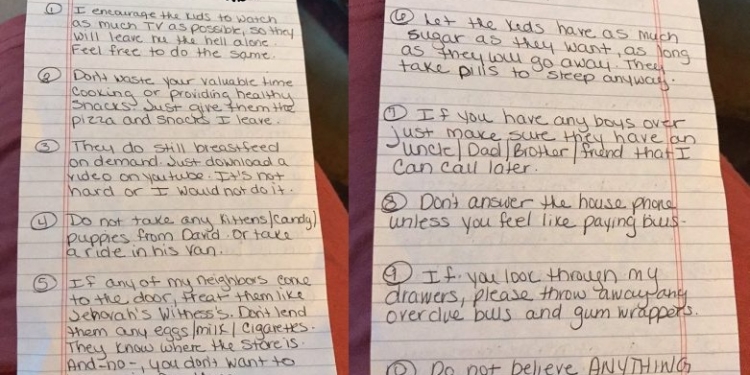 ① I encourage the kids to watch
as much TV as possible, so they
will leave me the hell alone.
Feel free to do the same.
② Don't waste your valuable time
cooking or providing healthy
snacks. Just give them the
pizza and snacks I leave.
③ They do still breastfeed
on demand. Just download a
video on youtube. It's not
hard or I would not do it.
④ Do not take any kittens/candy/
puppies from David. Or take
a ride in his van.
⑤ If any of my neighbors come
to the door, treat them like
Jehovah's Witness's. Don't lend
them any eggs/milk/cigarettes.
They know where the store is.
And-no-, you don't want to
⑥ Let the kids have as much
sugar as they want, as long
as they will go away. They
take pills to sleep anyway.
⑦ If you have any boys over
just make sure they have an
uncle/Dad/Brother/friend that I
can call later.
⑧ Don't answer the house phone
unless you feel like paying bills.
⑨ If you look through my
drawers, please throw away any
overdue bills and gum wrappers.
Do not believe ANYTHING